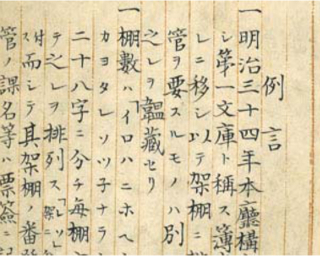 例言
一明治三十四年本廳構
シ第一文庫ト稱ス簿
レニ移シ以テ架棚ニ
管ヲ要スルモノハ別
之レヲ韞藏セリ
一棚數ハ「イロハニホヘ
カヨタレソツ子ナラ
二十八字ニ分チ毎棚
テ之レヲ排列ス「レソ」
付而シテ其架棚ノ番
管ノ課名等ハ票簽ニ